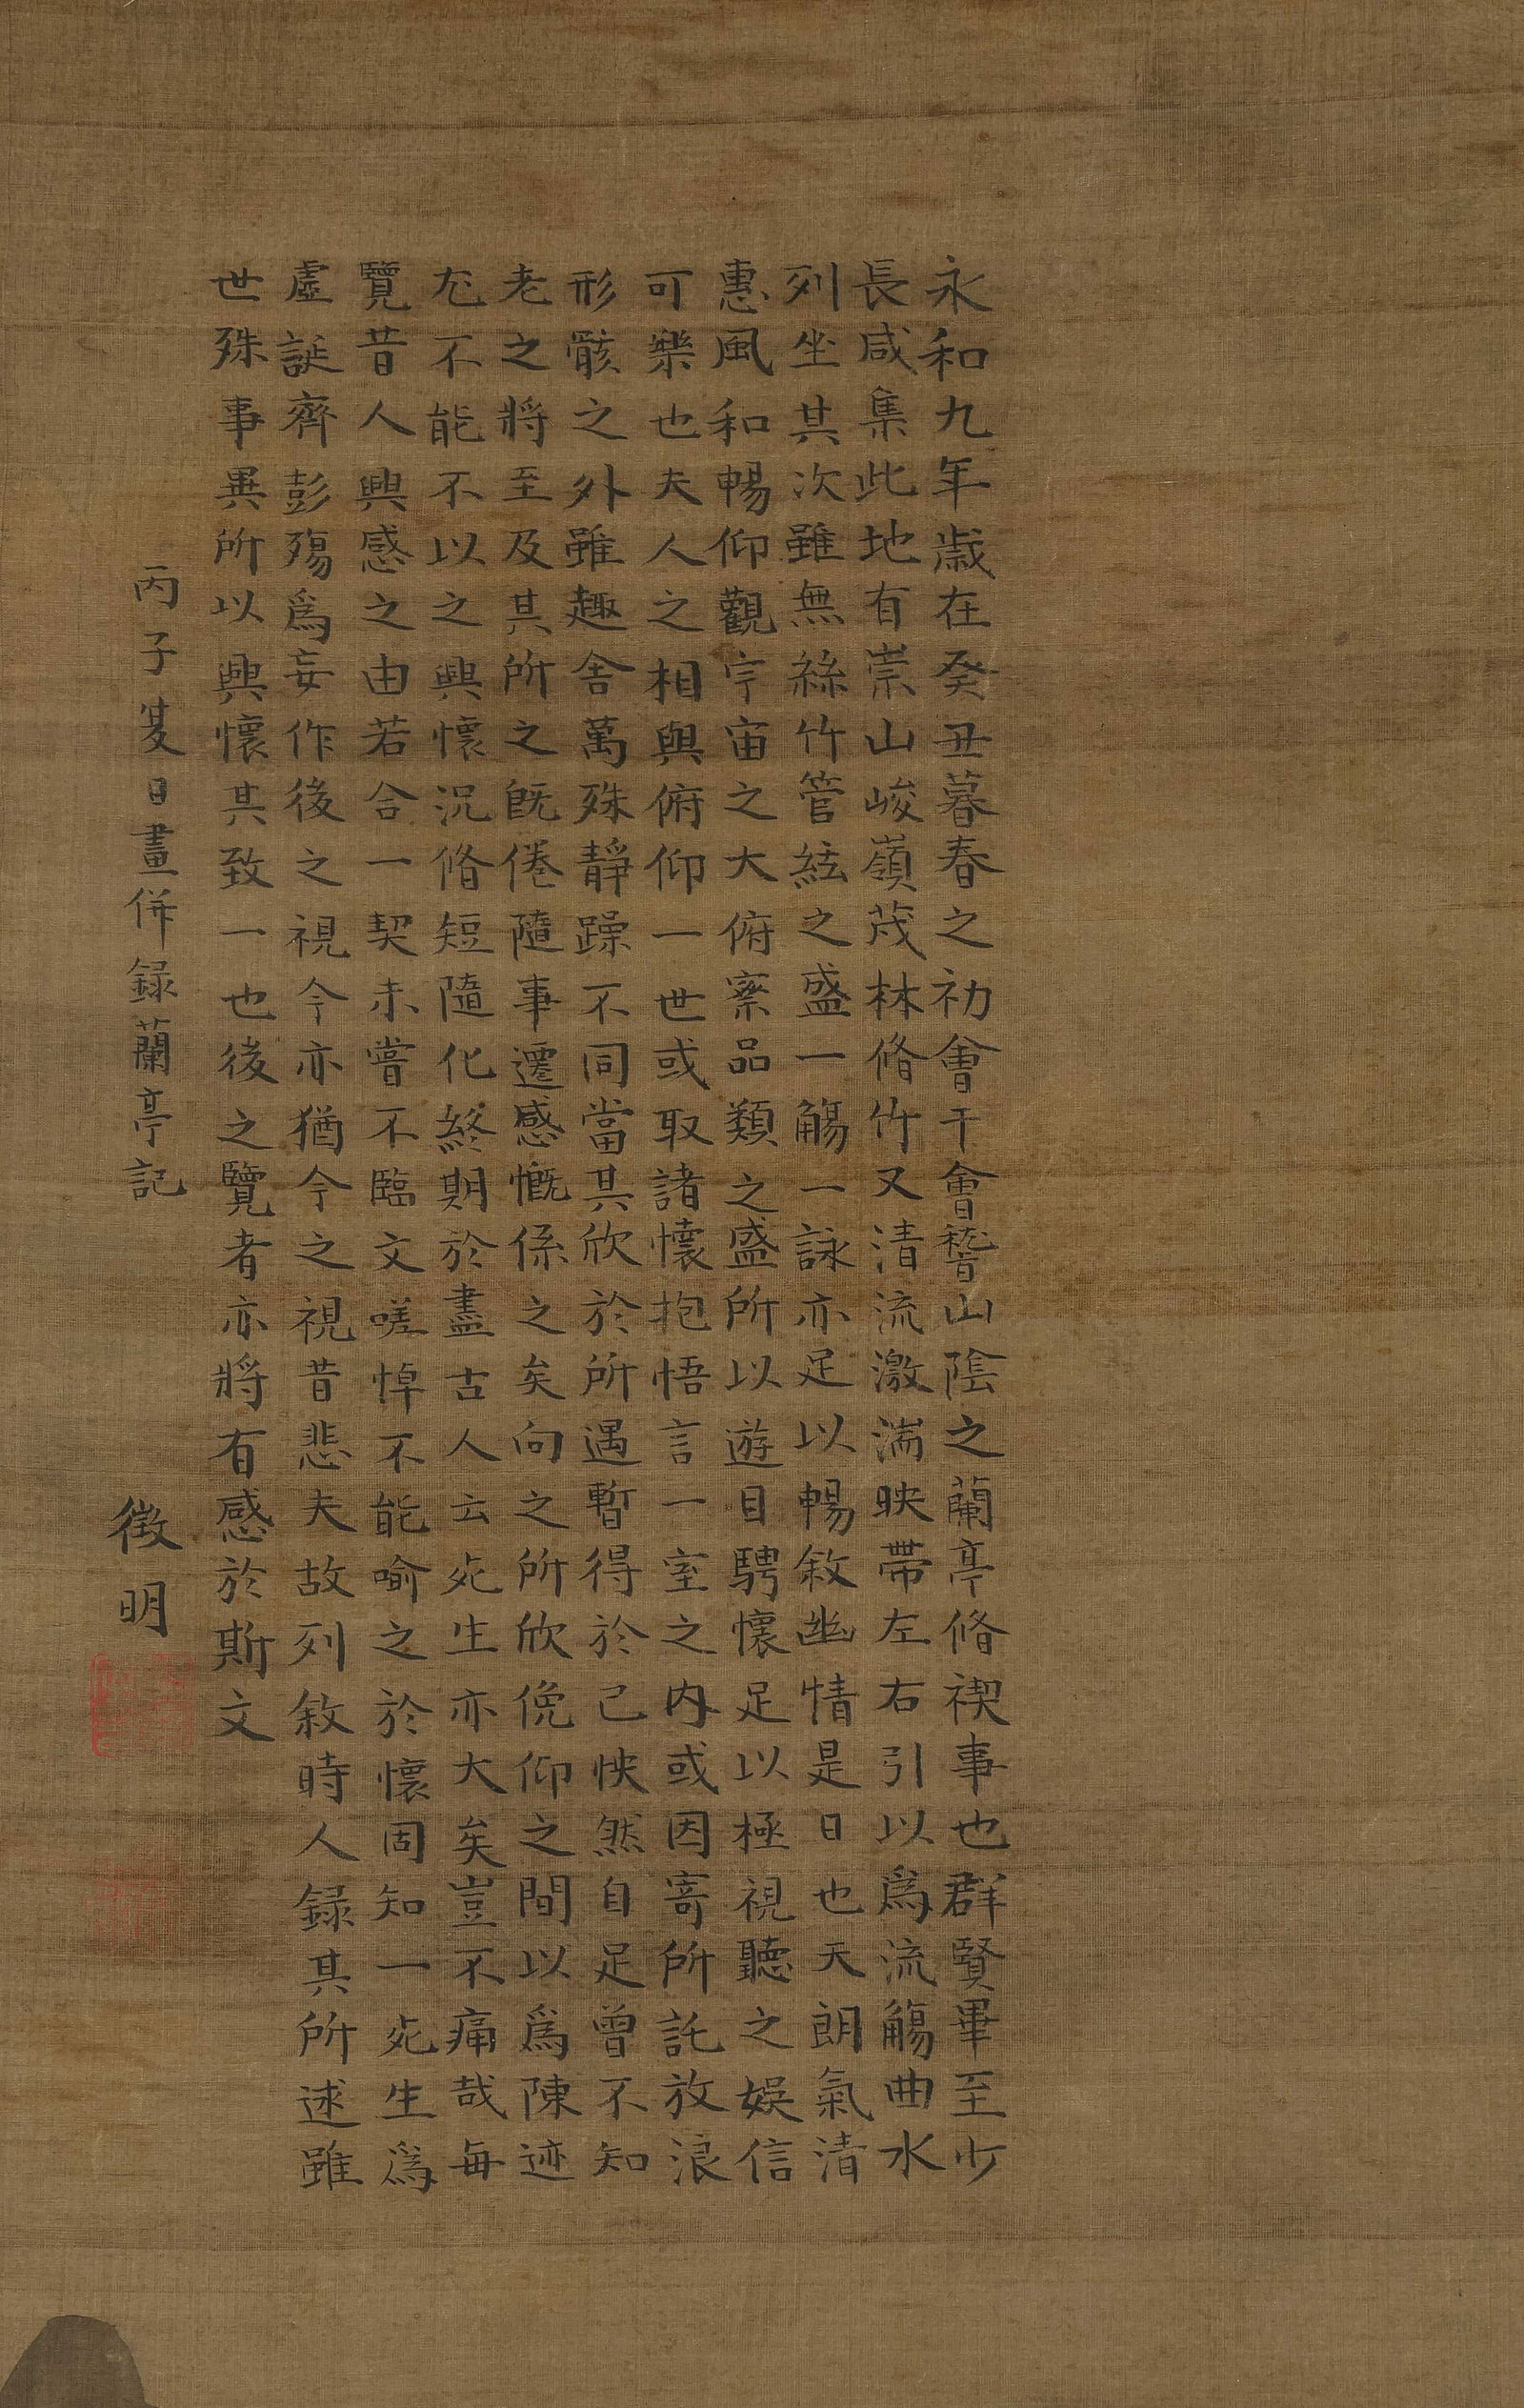 永和九年歲在癸丑暮春之初會于會稽山陰之蘭亭脩禊事也群賢畢至少
長咸集此地有崇山峻嶺茂林脩竹又清流激湍映帶左右引以為流觴曲水
列坐其次雖無絲竹管絃之盛一觴一詠亦足以暢敘幽情是日也天朗氣清
惠風和暢仰觀宇宙之大俯察品類之盛所以遊目騁懷足以極視聽之娛信
可樂也夫人之相與俯仰一世或取諸懷抱悟言一室之內或因寄所託放浪
形骸之外雖趣舍萬殊靜躁不同當其欣於所遇暫得於己怏然自足曾不知
老之將至及其所之既倦隨事遷感慨係之矣向之所欣俛仰之間以為陳迹
尤不能不以之興懷況脩短隨化終期於盡古人云死生亦大矣豈不痛哉每
覽昔人興感之由若合一契未嘗不臨文嗟悼不能喻之於懷固知一死生為
虛誕齊彭殤為妄作後之視今亦猶今之視昔悲夫故列敘時人錄其所述雖
世殊事異所以興懷其致一也後之覽者亦將有感於斯文
丙子夏日畫併錄蘭亭記 徵明